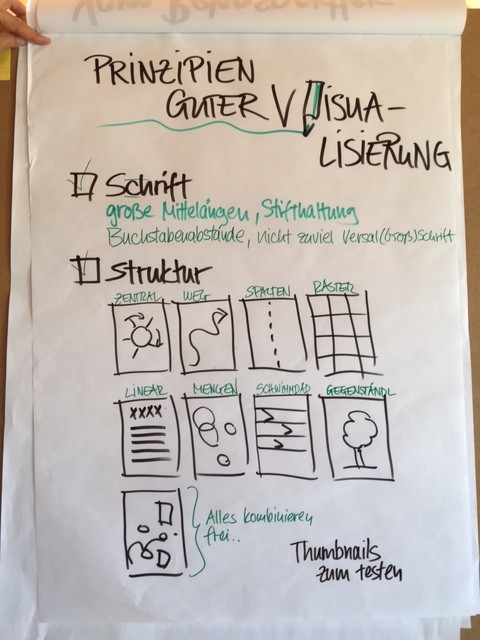 PRINZIPIEN
GUTER VISUA-
LISIERUNG
Schrift
große Mittellängen, Stifthaltung
Buchstabenabstände, nicht zuviel Versal(Groß)Schrift
Struktur
ZENTRAL WEG SPALTEN RASTER
LINEAR MENGEN SCHWIMMBAD GEGENSTÄNDL
XXXX
Alles kombinieren
frei..
Thumbnails
zum testen